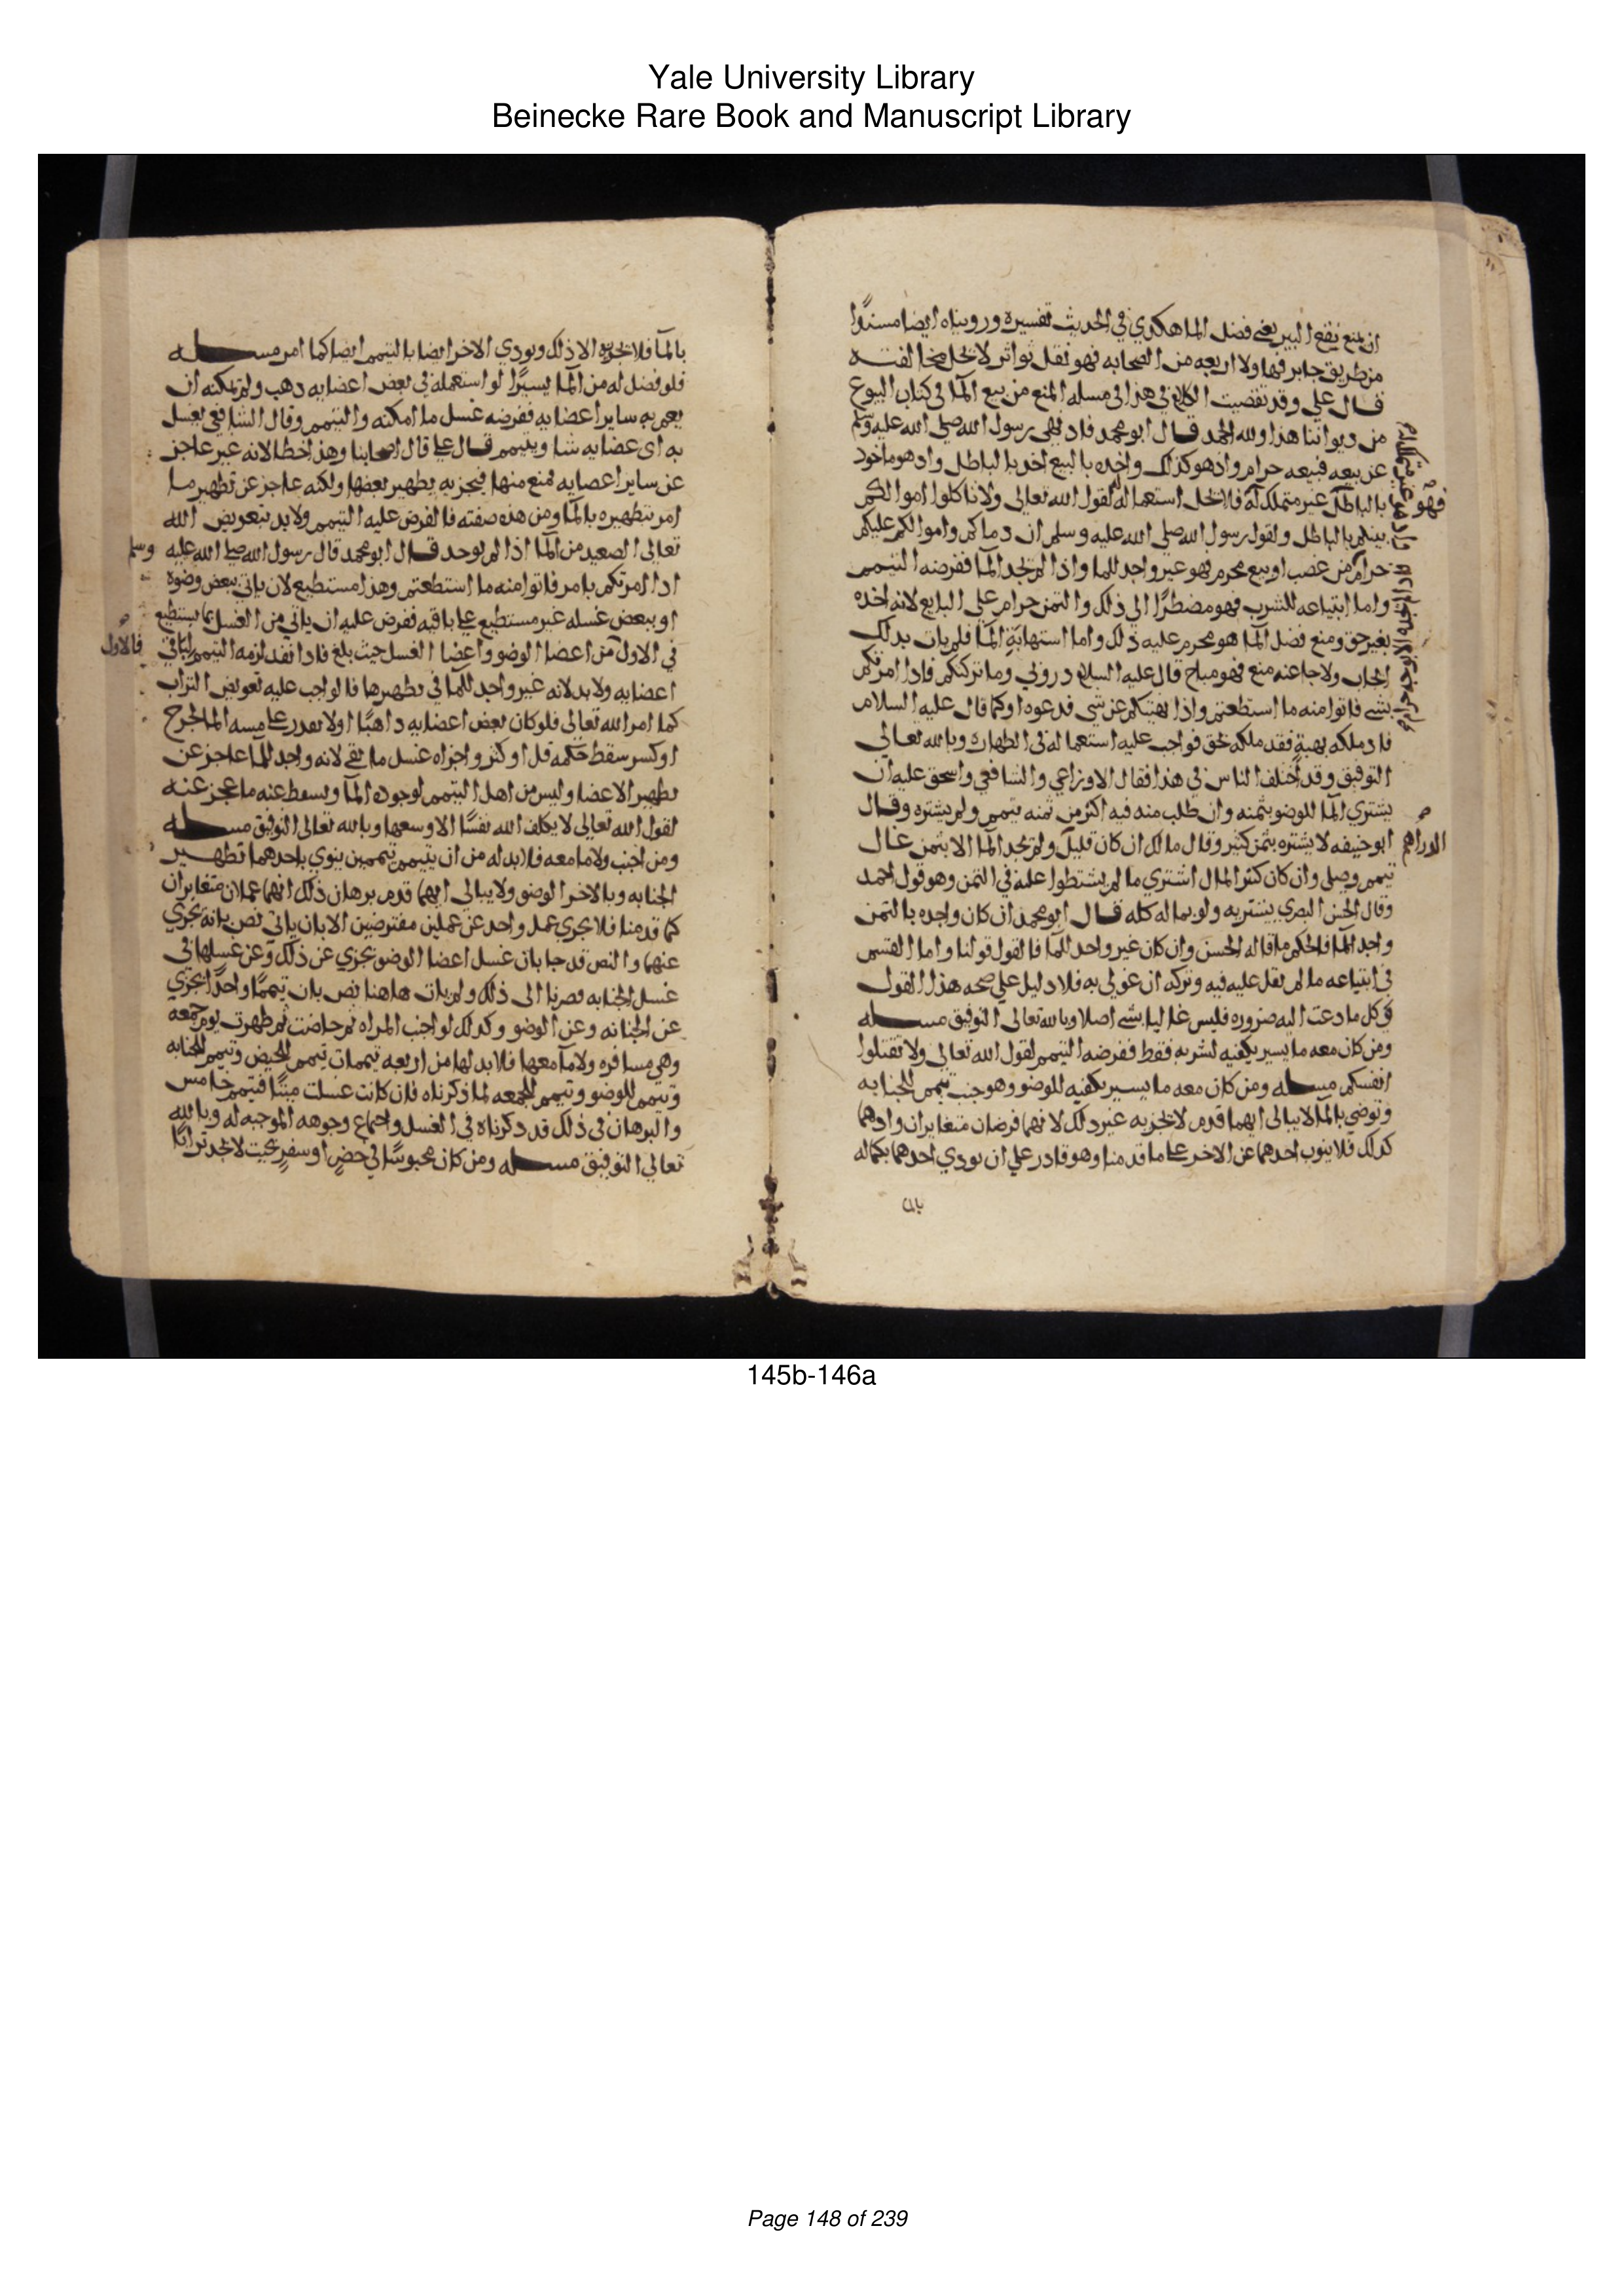 Yale University Library
Beinecke Rare Book and Manuscript Library
ان يمنع نقع البير يعني فضل الما هكذي في الحديث تفسيره ورويناه ايضا مسندًا
من طريق جابر فهاولا اربعه من الصحابه فهو نقل تواتر لا تحل مخالفته
قال علي وقد تقصيت الكلام في هذا في مسله المنع من بيع الما في كتاب البيوع
من ديواننا هذا ولله الحمد قال ابو محمد فاد نهى رسول الله صلى الله عليه وسلم
عن بيعه فبيعه حرام واذ هو كذلك واخذه بالبيع اخذ بالباطل واد هو ماخوذ
بالباطل غير متملك له فلا تحل استعماله لقول الله تعالى ولا تاكلوا اموالكم
فهو
بينكم بالباطل ولقول رسول الله صلى الله عليه وسلم ان دماكم واموالكم عليكم
حرام من غصب او بيع محرم فهو غير واجد للما واذا لم يجد الما ففرضه التيمم
واما ابتياعه للشرب فهو مضطرًا الى ذلك والثمن حرام على البايع لانه اخذه
بغير حق ومنع فضل الما هو محرم عليه ذلك واما استهابة الما فلم يات بدلك
ايجاب ولا جا عنه منع فهو مباح قال عليه السلام دروني وما تركتكم فاذا امرتكم
بشي فاتوا منه ما استطعتم واذا نهيتكم عن شي فدعوه او كما قال عليه السلام
فاد ملكه بهبة فقد ملكه بحق فواجب عليه استعماله في الطهاره وبالله تعالى
التوفيق وقد اختلف الناس في هذا فقال الاوزاعي والشافعي واسحق عليه ان
يشتري الما للوضو بثمنه وان طلب منه فيه اكثر من ثمنه تيمم ولم يشتره وقال
ابو حنيفه لا يشتره بثمن كثير وقال مالك ان كان قليل ولم يجد الما الا بثمن غال
الدراهم
تيمم وصلى وان كان كثير المال اشتري ما لم يشتطوا عليه في الثمن وهو قول احمد
وقال الحسن البصري يشتريه ولو بماله كله قال ابو محمد ان كان واجده بالثمن
واجد الما فالحكم ما قاله الحسن وان كان غير واجد للما فالقول قولنا واما القسم
في ابتياعه ما لم يغل عليه فيه وتركه ان غولي به فلا دليل على صحه هذا القول
في كل ما دعت اليه ضروره فليس غاليا بشي اصلا وبالله تعالى التوفيق مسله
ومن كان معه ما يسير يكفيه لشربه فقط ففرضه التيمم لقول الله تعالى ولا تقتلوا
انفسكم مسله ومن كان معه ما يسير يكفيه للوضو وهو جنب تيمم للجنابه
وتوضي بالما لا يبالي ايهما قدم لا تجزيه غير دلك لانهما فرضان متغايران واد هما
كدلك فلا ينوب احدهما عن الاخر على ما قدمنا وهو قادر على ان يودي احدهما بكماله
بالما
بالما فلا تجزيه الا ذلك ويودي الاخر ايضا بالتيمم ايضا كما امر مسله
فلو فضل له من الما يسيرًا لو استعمله في بعض اعضايه دهب ولم تمكنه ان
يعم به ساير اعضايه ففرضه غسل ما امكنه والتيمم وقال الشافعي يغسل
به اى عضايه شا ويتيمم قال علي قال اصحابنا وهذا خطا لانه غير عاجز
عن ساير اعضايه فمنع منها فيجزيه تطهير بعضها ولكنه عاجز عن تطهير ما
امر بتطهيره بالما ومن هذه صفته فالفرض عليه التيمم ولا بد بتعويض الله
تعالى الصعيد من الما اذا لم يوجد قال ابو محمد قال رسول الله صلى الله عليه
وسلم
ادا امرتكم بامر فاتوا منه ما استطعتم وهذا مستطيع لان ياتي ببعض وضوه
او ببعض غسله غير مستطيع على باقيه ففرض عليه ان ياتي من الغسل بما يستطيع
في الاول من اعضا الوضو واعضا الغسل حيث بلغ فادا نفد لزمه التيمم لباقي
فالاول
اعضايه ولا بد لانه غير واجد للما في تطهيرها فالواجب عليه تعويض التراب
كما امر الله تعالى فلو كان بعض اعضايه داهبًا او لا يقدر على مسه الما لجرح
او كسر سقط حكمه قل او كثر واجزاه غسل ما بقي لانه واجد للما عاجز عن
تطهير الاعضا وليس من اهل التيمم لوجوده الما ويسقط عنه ما عجز عنه
لقول الله تعالى لا يكلف الله نفسًا الا وسعها وبالله تعالى التوفيق مسله
ومن اجنب ولا ما معه فلا بد له من ان يتيمم تيممين ينوي باحدهما تطهير
الجنابه وبالاخر الوضو ولا يبالي ايهما قدم برهان ذلك انهما عملان متغايران
كما قدمنا فلا يجزي عمل واحد عن عملين مفترضين الا بان ياتي نص بانه يجزي
عنهما والنص قد جا بان غسل اعضا الوضو تجزي عن ذلك وعن غسلها في
غسل الجنابه فصرنا الى ذلك ولم يات هاهنا نص بان تيممًا واحدًا يجزي
عن الجنابه وعن الوضو وكدلك لو اجنب المراه ثم حاضت ثم طهرت يوم جمعه
وهي مسافره ولا ما معها فلا بد لها من اربعه تيممات تيمم للحيض وتيمم للجنابه
وتيمم للوضو وتيمم للجمعه لما ذكرناه فان كانت غسلت ميتًا فتيمم خامس
والبرهان في ذلك قد دكرناه في الغسل واجماع وجوهه الموجبه له وبالله
تعالى التوفيق مسله ومن كان محبوسًا في حضر او سفر بحيث لا يجد ترابًا
145b-146a
Page 148 of 239